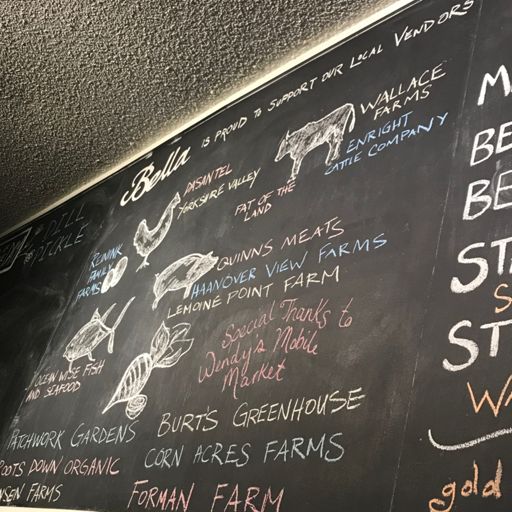 Bella IS PROUD TO SUPPORT OUR LOCAL VENDORS
DILL
PICKLE
WALLACE
FARMS
ENRIGHT
CATTLE COMPANY
FAT OF THE
LAND
PASANTEL
YORKSHIRE VALLEY
REININK
FAMILY
FARMS
QUINNS MEATS
HAANOVER VIEW FARMS
LEMOINE POINT FARM
OCEAN WISE FISH
AND SEAFOOD
Special Thanks to
Wendy's Mobile
Market
PATCHWORK GARDENS
BURT'S GREENHOUSE
ROOTS DOWN ORGANIC
CORN ACRES FARMS
FARMS
FORMAN FARM
M
BE
BE
ST
S
ST
WA
gold